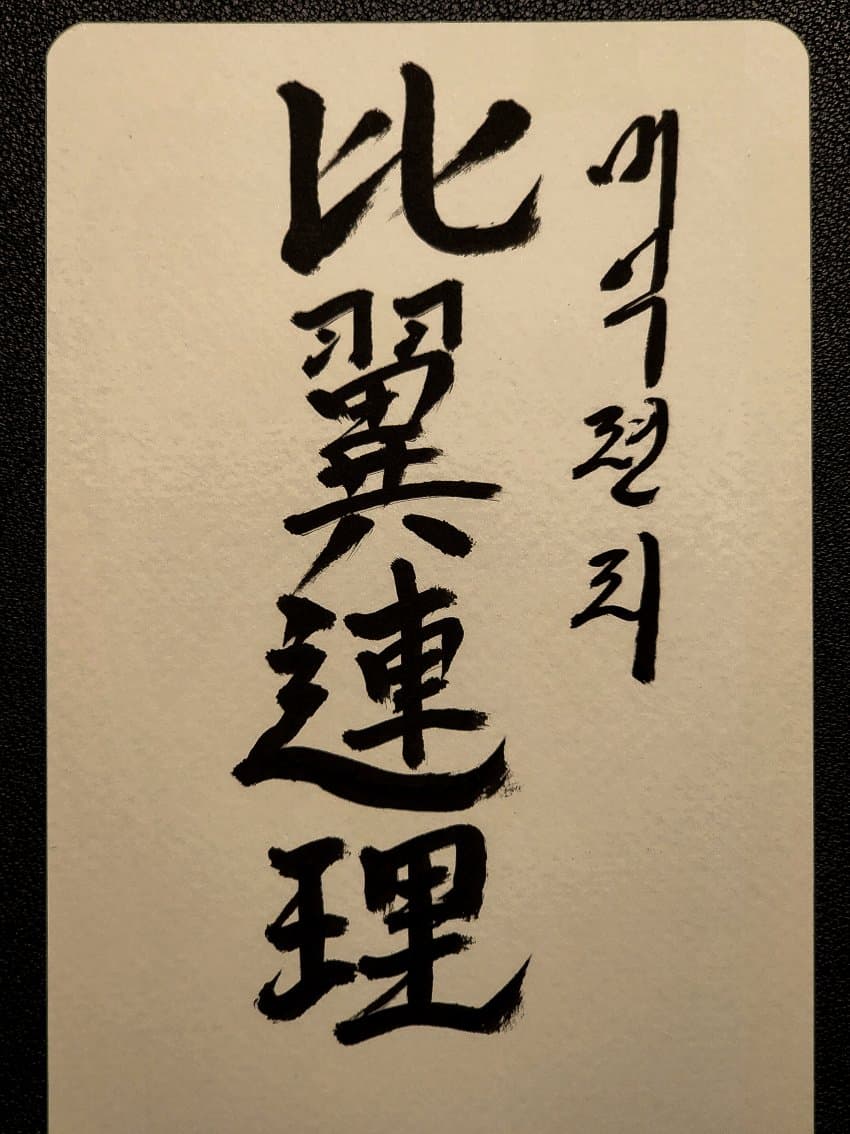 비익련리
比翼連理